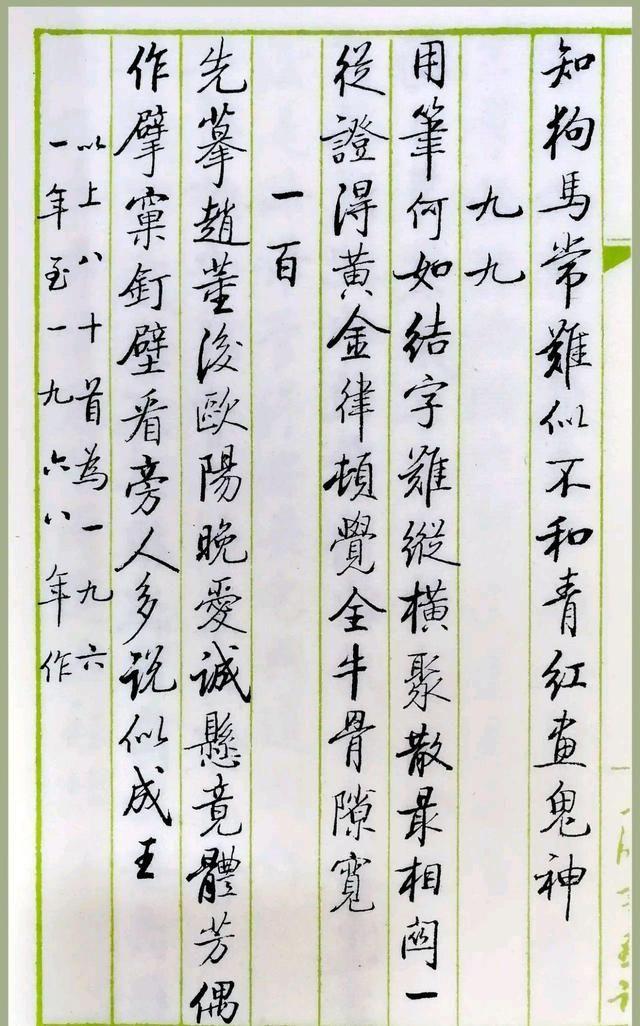 知狗馬常難似不和青紅畫鬼神
九九
用筆何如結字難縱橫聚散最相關一
從證得黃金律頓覺全牛骨隙寬
一百
先摹趙董後歐陽晚愛誠懸竟體芳偶
作擘窠釘壁看旁人多説似成王
以上八十首為一九六
一年至一九六八年作